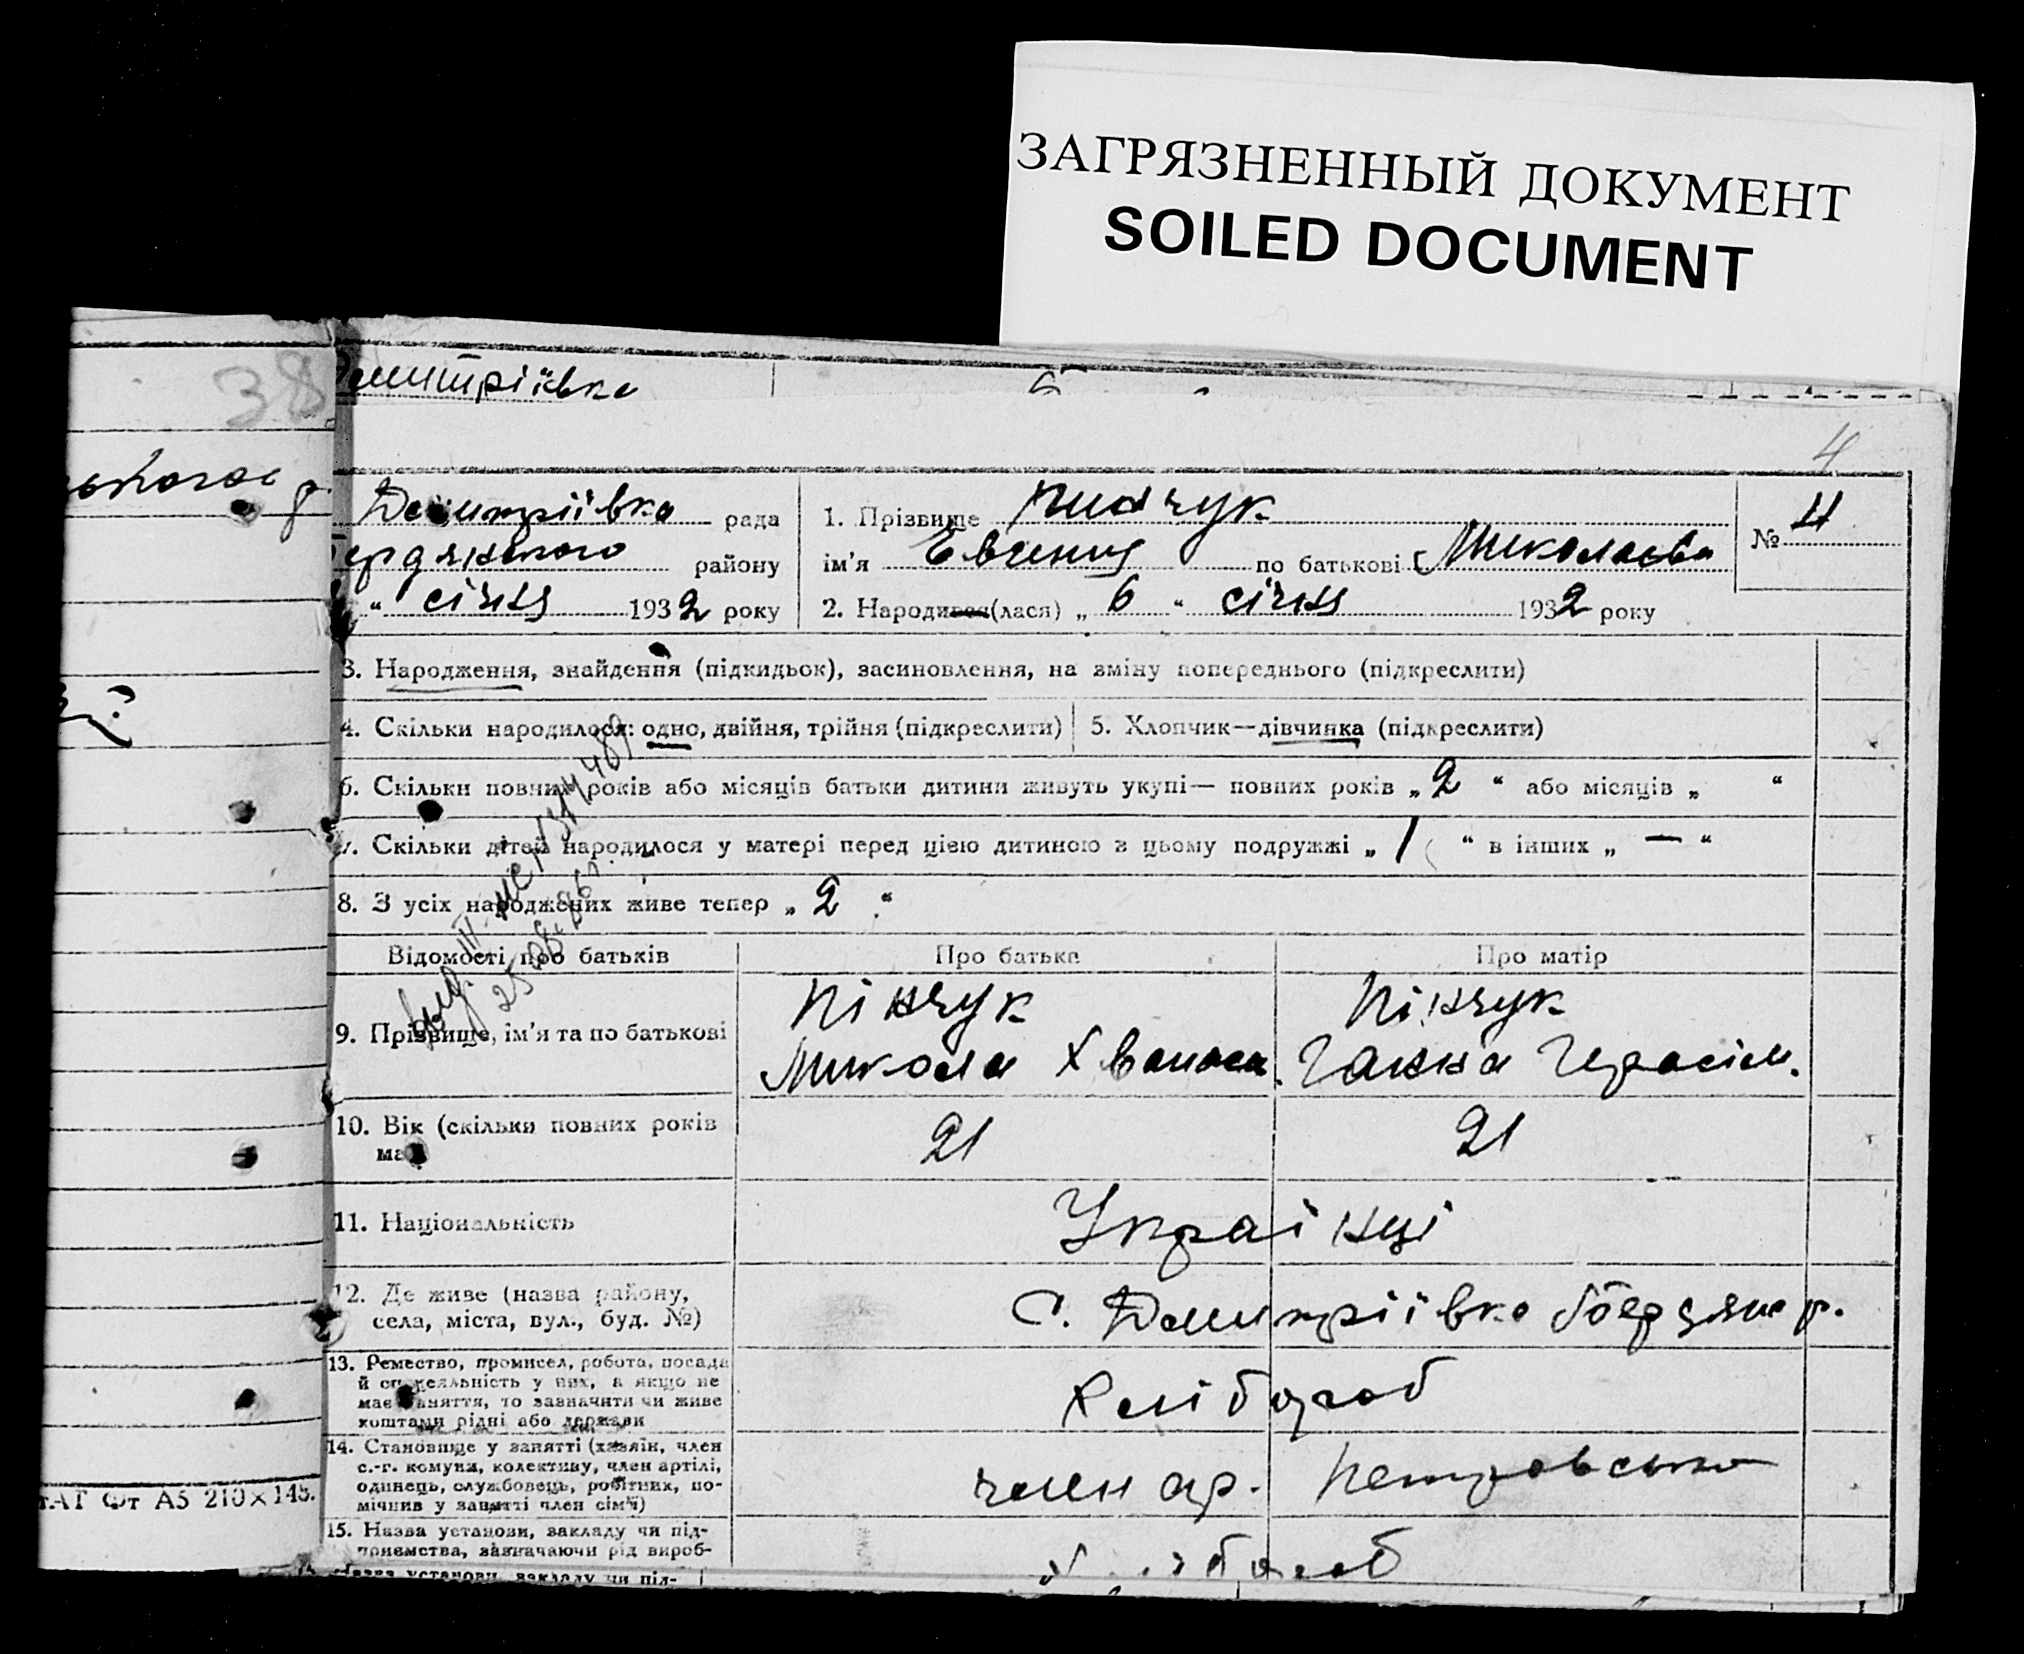 ЗАГРЯЗНЕННЫЙ ДОКУМЕНТ
SOILED DOCUMENT
38
Дмитріївка
4
р.
Дмитріївка рада
1. Прізвище Пинчук
№ 4
району
ім'я Евгения по батькові Миколаєвн
„ “ січня 1932 року
2. Народився(лася) „ 6 “ січня 1932 року
3. Народження, знайдення (підкидьок), засиновлення, на зміну попереднього (підкреслити)
4. Скільки народилося: одно, двійня, трійня (підкреслити)
5. Хлопчик—дівчинка (підкреслити)
6. Скільки повних років або місяців батьки дитини живуть укупі— повних років „ 2 “ або місяців „ “
7. Скільки дітей народилося у матері перед цією дитиною в цьому подружжі „ 1 “ в інших „ — “
8. З усіх народжених живе тепер „ 2 “
Відомості про батьків
Про батька
Про матір
9. Прізвище, ім'я та по батькові
Пінчук
Микола Хванас.
Пінчук
Ганна Герасім.
10. Вік (скільки повних років
має)
21
21
11. Національність
Українці
12. Де живе (назва району,
села, міста, вул., буд. №)
С. Дмитріївка Бердянс р.
13. Ремество, промисел, робота, посада
й спеціяльність у них, а якщо не
має заняття, то зазначити чи живе
коштами рідні або держави
Хлібороб
14. Становище у занятті (хазяїн, член
с.-г. комуни, колективу, член артілі,
одинець, службовець, робітник, по-
мічник у занятті член сім'ї)
член ар. Петровського
15. Назва установи, закладу чи під-
приємства, зазначаючи рід вироб-
Назва установи, закладу чи під-
Фт А5 210×145.